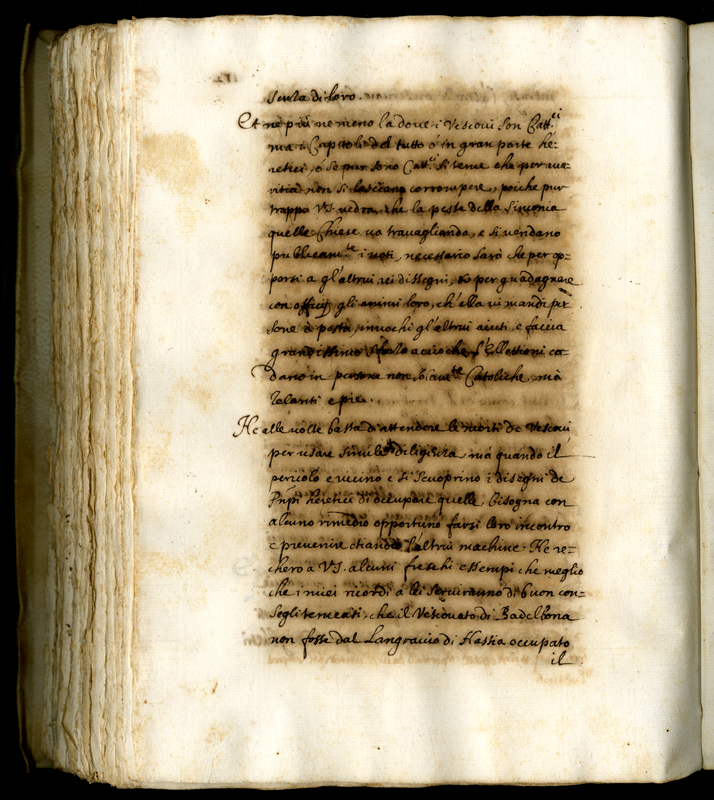 scusa di loro.
Et ne più ne meno la dove i Vescovi son Catt.ci
ma i Capitoli del tutto ò in gran parte he-
retici, ò se pur sono Catt.ci si teme che per ava-
ritia non si lasciano corrompere, poiche pur
troppo V.S. vedrà, che la peste della Simonia
quelle Chiese va travagliando, e si vendano
publicam.te i voti, necessario sarà che per op-
porsi a gl'altrui rei disegni, et per guadagnare
con officij gli animi loro, ch'ella vi mandi per
sone à posta, invochi gl'altrui aiuti, e faccia
grandissimo sforzo acciò che l'Ellettioni ca-
dano in persone non Catoliche, mà
Zelanti e pie.
Ne alle volte basta di attendere le morti de Vescovi
per usare simile diligenza, mà quando il
pericolo e vicino e si scuoprino i disegni de
Pnpi heretici di occupare quelle, bisogna con
alcuno rimedio opportuno farsi loro incontro
e prevenire etiandio l'altrui machine. He re-
cherò a V.S. alcuni freschi essempi che meglio
che i miei ricordi à lei serviranno di buon con-
seglio che il Vescovato di Badelbona
non fosse dal Langravio di Hassia occupato
il